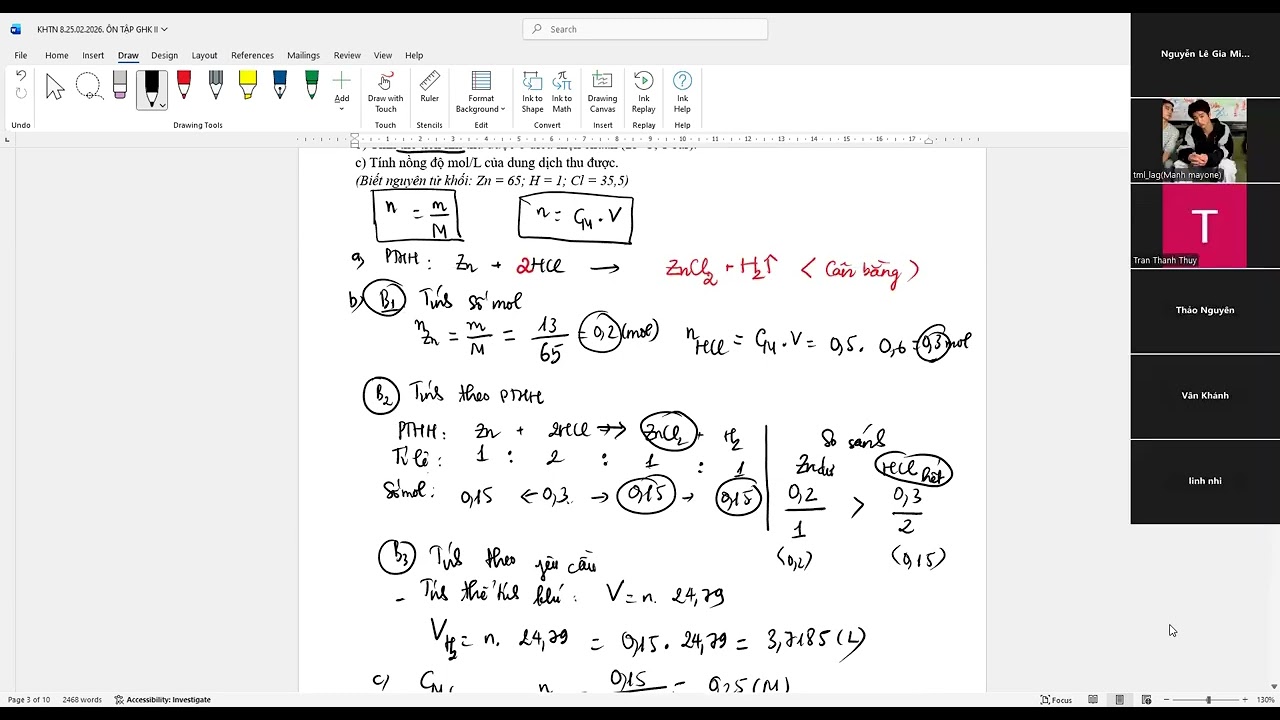 KHTN 8.25.02.2026. ÔN TẬP GHK II
Search
File Home Insert Draw Design Layout References Mailings Review View Help
Add
Draw with Touch
Ruler
Format Background
Ink to Shape
Ink to Math
Drawing Canvas
Ink Replay
Ink Help
Undo
Drawing Tools
Touch
Stencils
Edit
Convert
Insert
Replay
Help
1 2 3 4 5 6 7 8 9 10 11 12 13 14 15 16 17
c) Tính nồng độ mol/L của dung dịch thu được.
(Biết nguyên tử khối: Zn = 65; H = 1; Cl = 35,5)
n = m/M n = CM . V
a) PTHH: Zn + 2HCl → ZnCl2 + H2↑ (Cân bằng)
b) B1 Tính số mol
nZn = m/M = 13/65 = 0,2 (mol) nHCl = CM . V = 0,5. 0,6 = 0,3 mol
B2 Tính theo PTHH
PTHH: Zn + 2HCl → ZnCl2 + H2
Tỉ lệ: 1 : 2 : 1 : 1
Số mol: 0,15 ← 0,3 → 0,15 → 0,15
So sánh
Zn dư HCl hết
0,2/1 > 0,3/2
(0,2) (0,15)
B3 Tính theo yêu cầu
- Tính thể tích khí: V = n. 24,79
VH2 = n. 24,79 = 0,15 . 24,79 = 3,7185 (L)
c) CM n 0,15 = 0,25 (M)
Nguyễn Lê Gia Mi...
tml_lag(Manh mayone)
T
Tran Thanh Thuy
Thảo Nguyên
Văn Khánh
linh nhi
Page 3 of 10 2468 words Accessibility: Investigate Focus 130%